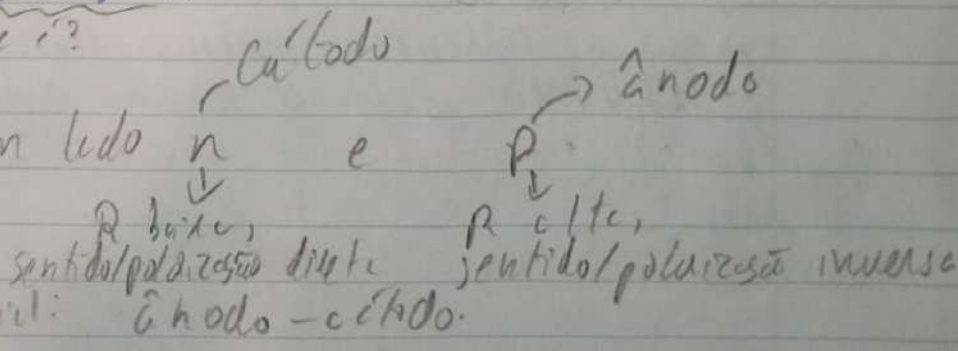 é?
Cátodo
ânodo
n lado n e P
R baixa, R alta,
sentido/polarização direta sentido/polarização inversa
ânodo - cátodo.